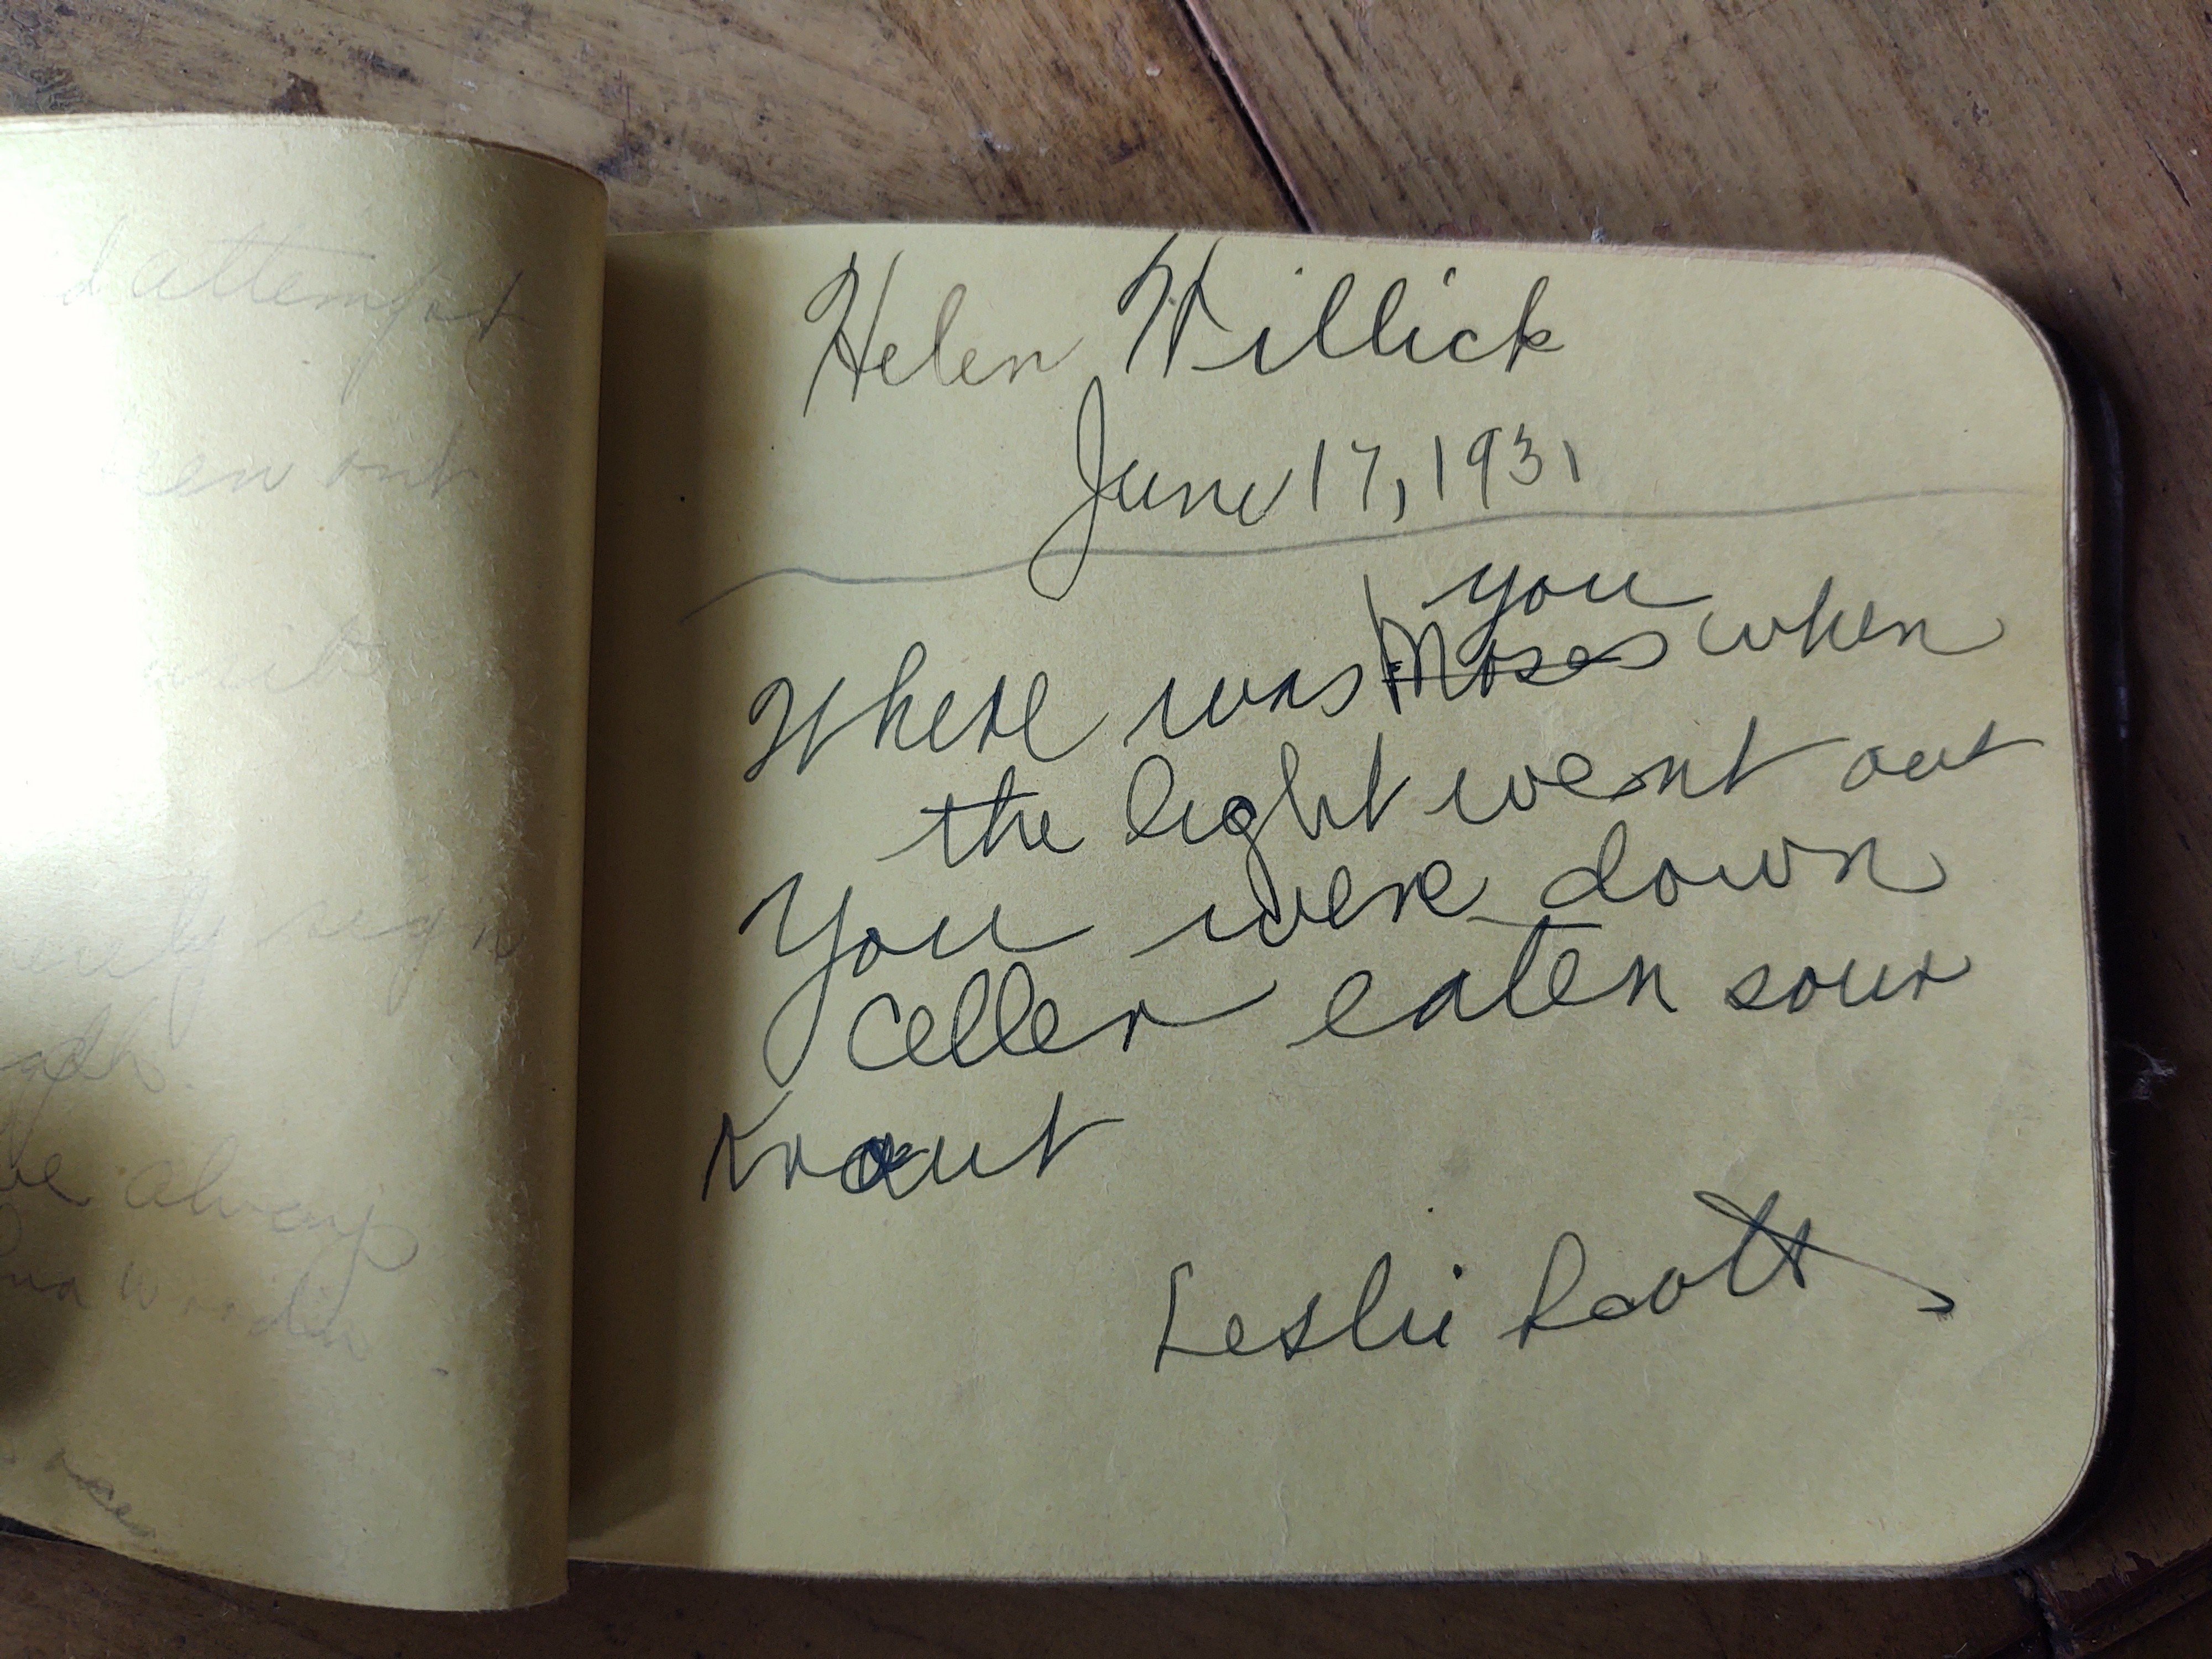 d attempt
en out
write
sign
be always
Helen Willick
June 17, 1931
you
Where was Moses when
the light went out
You were down
Celler eaten sour
Kraut
Leslie Scott